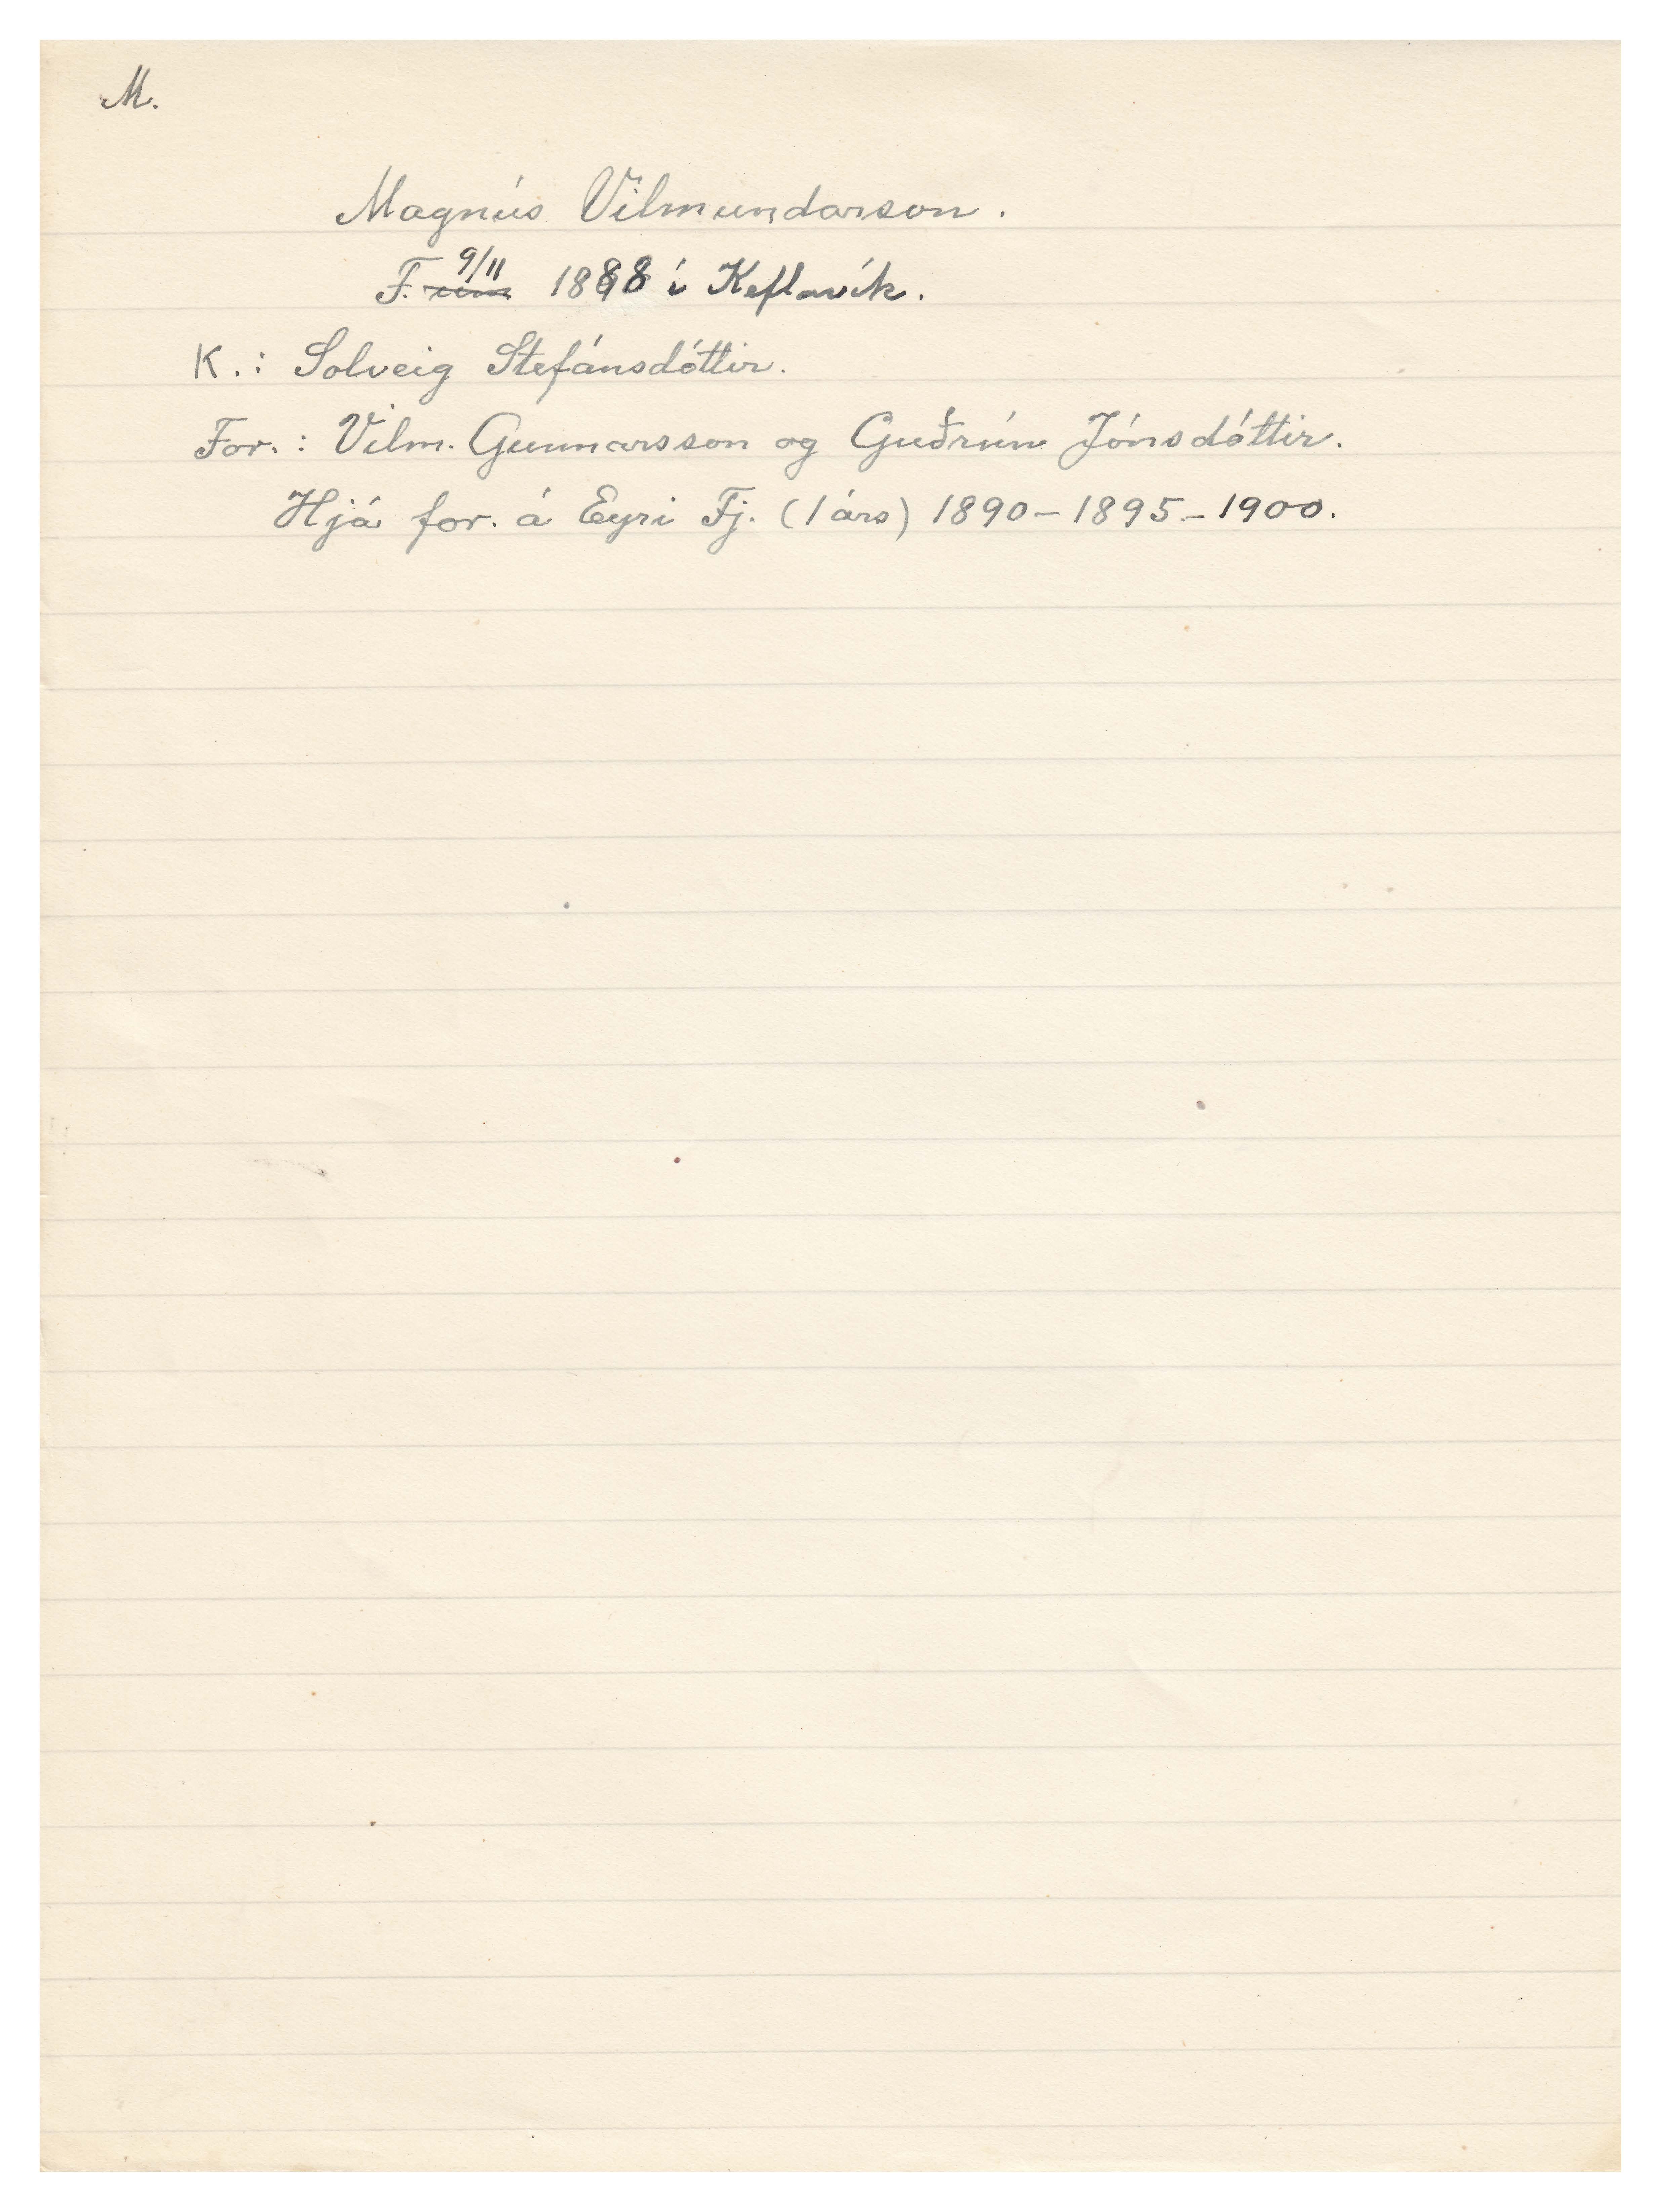 M.
Magnús Vilmundarson.
F. um 9/11 1888 í Keflavík.
K.: Solveig Stefánsdóttir.
For.: Vilm. Gunnarsson og Guðrún Jónsdóttir.
Hjá for. á Eyri Fj. (1 árs) 1890-1895-1900.